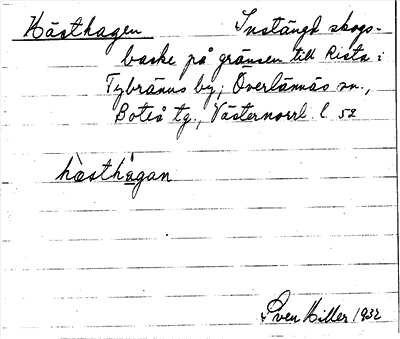 Hästhagen Instängd skogs-
backe på gränsen till Rista i
Tybränus by, Överlännäs sn.,
Boteå tg., Västernorrl. l. 52
hæsthagan
Sven Hiller 1932